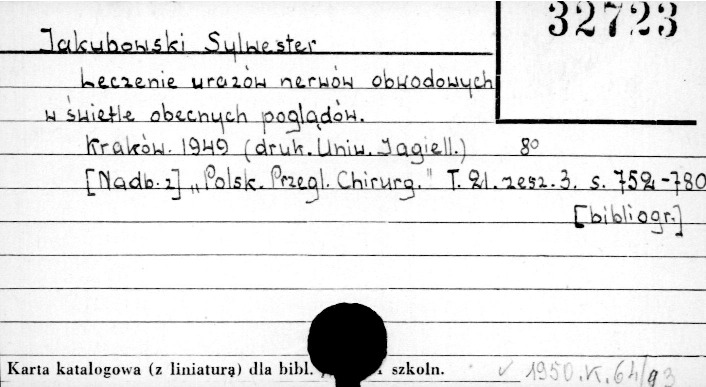 32723
Jakubowski Sylwester
Leczenie urazów nerwów obwodowych
w świetle obecnych poglądów.
Kraków. 1949 (druk. Uniw. Jagiell.) 8°
[Nadb. z] „Polsk. Przegl. Chirurg." T. 21. zesz. 3. s. 752-780
[bibliogr.]
Karta katalogowa (z liniaturą) dla bibl. szkoln.
✓ 1950.K.64/93